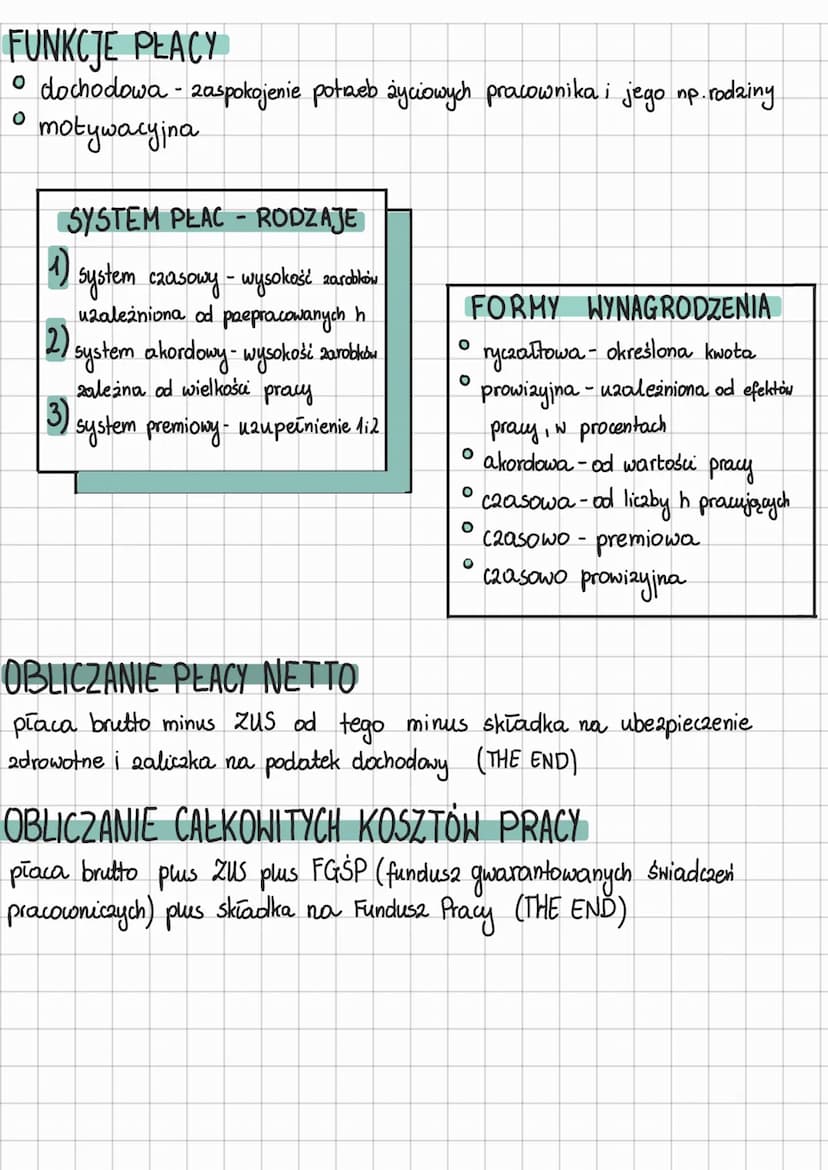 FUNKCJE PŁACY
dochodowa - zaspokojenie potrzeb życiowych pracownika i jego np. rodziny
motywacyjna
SYSTEM PŁAC - RODZAJE
1) system czasowy - wysokość zarobków
uzależniona od przepracowanych h
2) system akordowy - wysokość zarobków
zależna od wielkości pracy
3) system premiowy - uzupełnienie 1i2
FORMY WYNAGRODZENIA
ryczałtowa - określona kwota
prowizyjna - uzależniona od efektów
pracy, w procentach
akordowa - od wartości pracy
czasowa - od liczby h pracujących
czasowo - premiowa
czasowo prowizyjna
OBLICZANIE PŁACY NETTO
płaca brutto minus ZUS od tego minus składka na ubezpieczenie
zdrowotne i zaliczka na podatek dochodowy (THE END)
OBLICZANIE CAŁKOWITYCH KOSZTÓW PRACY
płaca brutto plus ZUS plus FGŚP (fundusz gwarantowanych świadczeń
pracowniczych) plus składka na Fundusz Pracy (THE END)